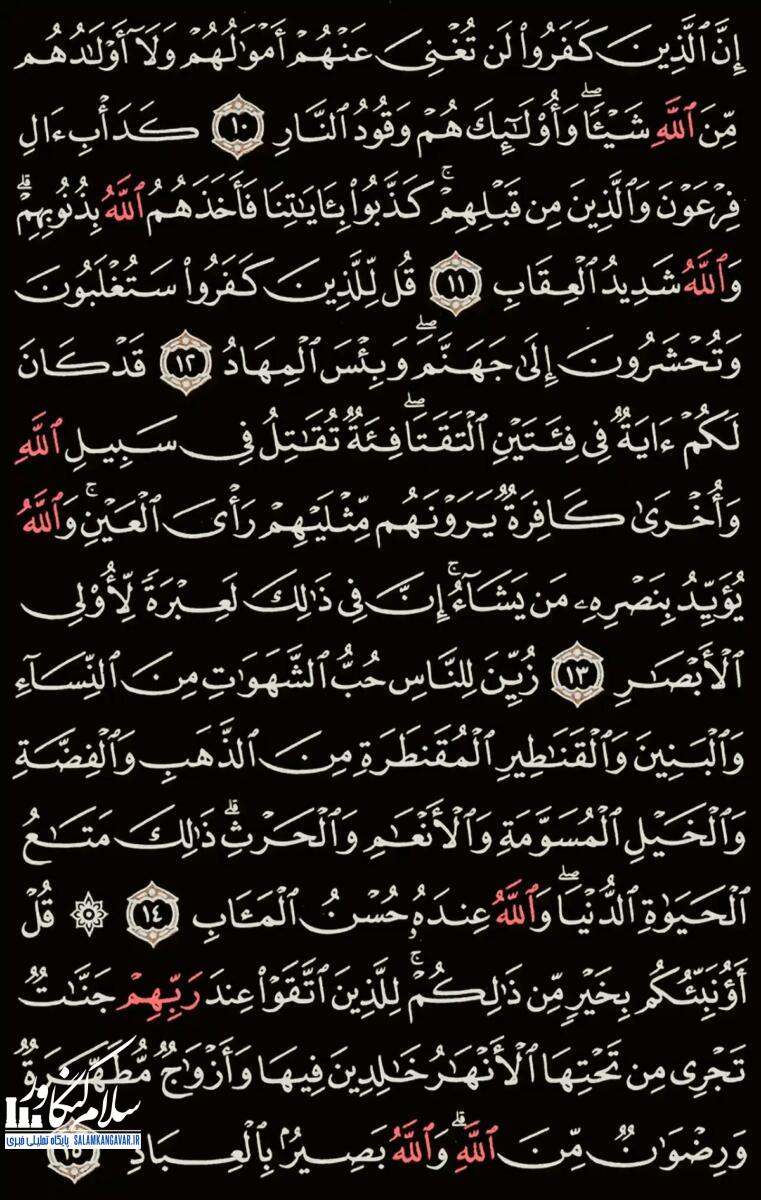 إِنَّ ٱلَّذِينَ كَفَرُوا۟ لَن تُغْنِىَ عَنْهُمْ أَمْوَٰلُهُمْ وَلَآ أَوْلَـٰدُهُم
مِّنَ ٱللَّهِ شَيْـًٔا ۖ وَأُو۟لَـٰٓئِكَ هُمْ وَقُودُ ٱلنَّارِ ١٠ كَدَأْبِ ءَالِ
فِرْعَوْنَ وَٱلَّذِينَ مِن قَبْلِهِمْ ۚ كَذَّبُوا۟ بِـَٔايَـٰتِنَا فَأَخَذَهُمُ ٱللَّهُ بِذُنُوبِهِمْ ۗ
وَٱللَّهُ شَدِيدُ ٱلْعِقَابِ ١١ قُل لِّلَّذِينَ كَفَرُوا۟ سَتُغْلَبُونَ
وَتُحْشَرُونَ إِلَىٰ جَهَنَّمَ ۖ وَبِئْسَ ٱلْمِهَادُ ١٢ قَدْ كَانَ
لَكُمْ ءَايَةٌ فِى فِئَتَيْنِ ٱلْتَقَتَا ۖ فِئَةٌ تُقَـٰتِلُ فِى سَبِيلِ ٱللَّهِ
وَأُخْرَىٰ كَافِرَةٌ يَرَوْنَهُم مِّثْلَيْهِمْ رَأْىَ ٱلْعَيْنِ ۚ وَٱللَّهُ
يُؤَيِّدُ بِنَصْرِهِۦ مَن يَشَآءُ ۚ إِنَّ فِى ذَٰلِكَ لَعِبْرَةً لِّأُو۟لِى
ٱلْأَبْصَـٰرِ ١٣ زُيِّنَ لِلنَّاسِ حُبُّ ٱلشَّهَوَٰتِ مِنَ ٱلنِّسَآءِ
وَٱلْبَنِينَ وَٱلْقَنَـٰطِيرِ ٱلْمُقَنطَرَةِ مِنَ ٱلذَّهَبِ وَٱلْفِضَّةِ
وَٱلْخَيْلِ ٱلْمُسَوَّمَةِ وَٱلْأَنْعَـٰمِ وَٱلْحَرْثِ ۗ ذَٰلِكَ مَتَـٰعُ
ٱلْحَيَوٰةِ ٱلدُّنْيَا ۖ وَٱللَّهُ عِندَهُۥ حُسْنُ ٱلْمَـَٔابِ ١٤ ۞ قُلْ
أَؤُنَبِّئُكُم بِخَيْرٍ مِّن ذَٰلِكُمْ ۚ لِلَّذِينَ ٱتَّقَوْا۟ عِندَ رَبِّهِمْ جَنَّـٰتٌ
تَجْرِى مِن تَحْتِهَا ٱلْأَنْهَـٰرُ خَـٰلِدِينَ فِيهَا وَأَزْوَٰجٌ مُّطَهَّرَةٌ
وَرِضْوَٰنٌ مِّنَ ٱللَّهِ ۗ وَٱللَّهُ بَصِيرٌۢ بِٱلْعِبَادِ ١٥
سلام کنگاور
پایگاه تحلیلی خبری SALAMKANGAVAR.IR